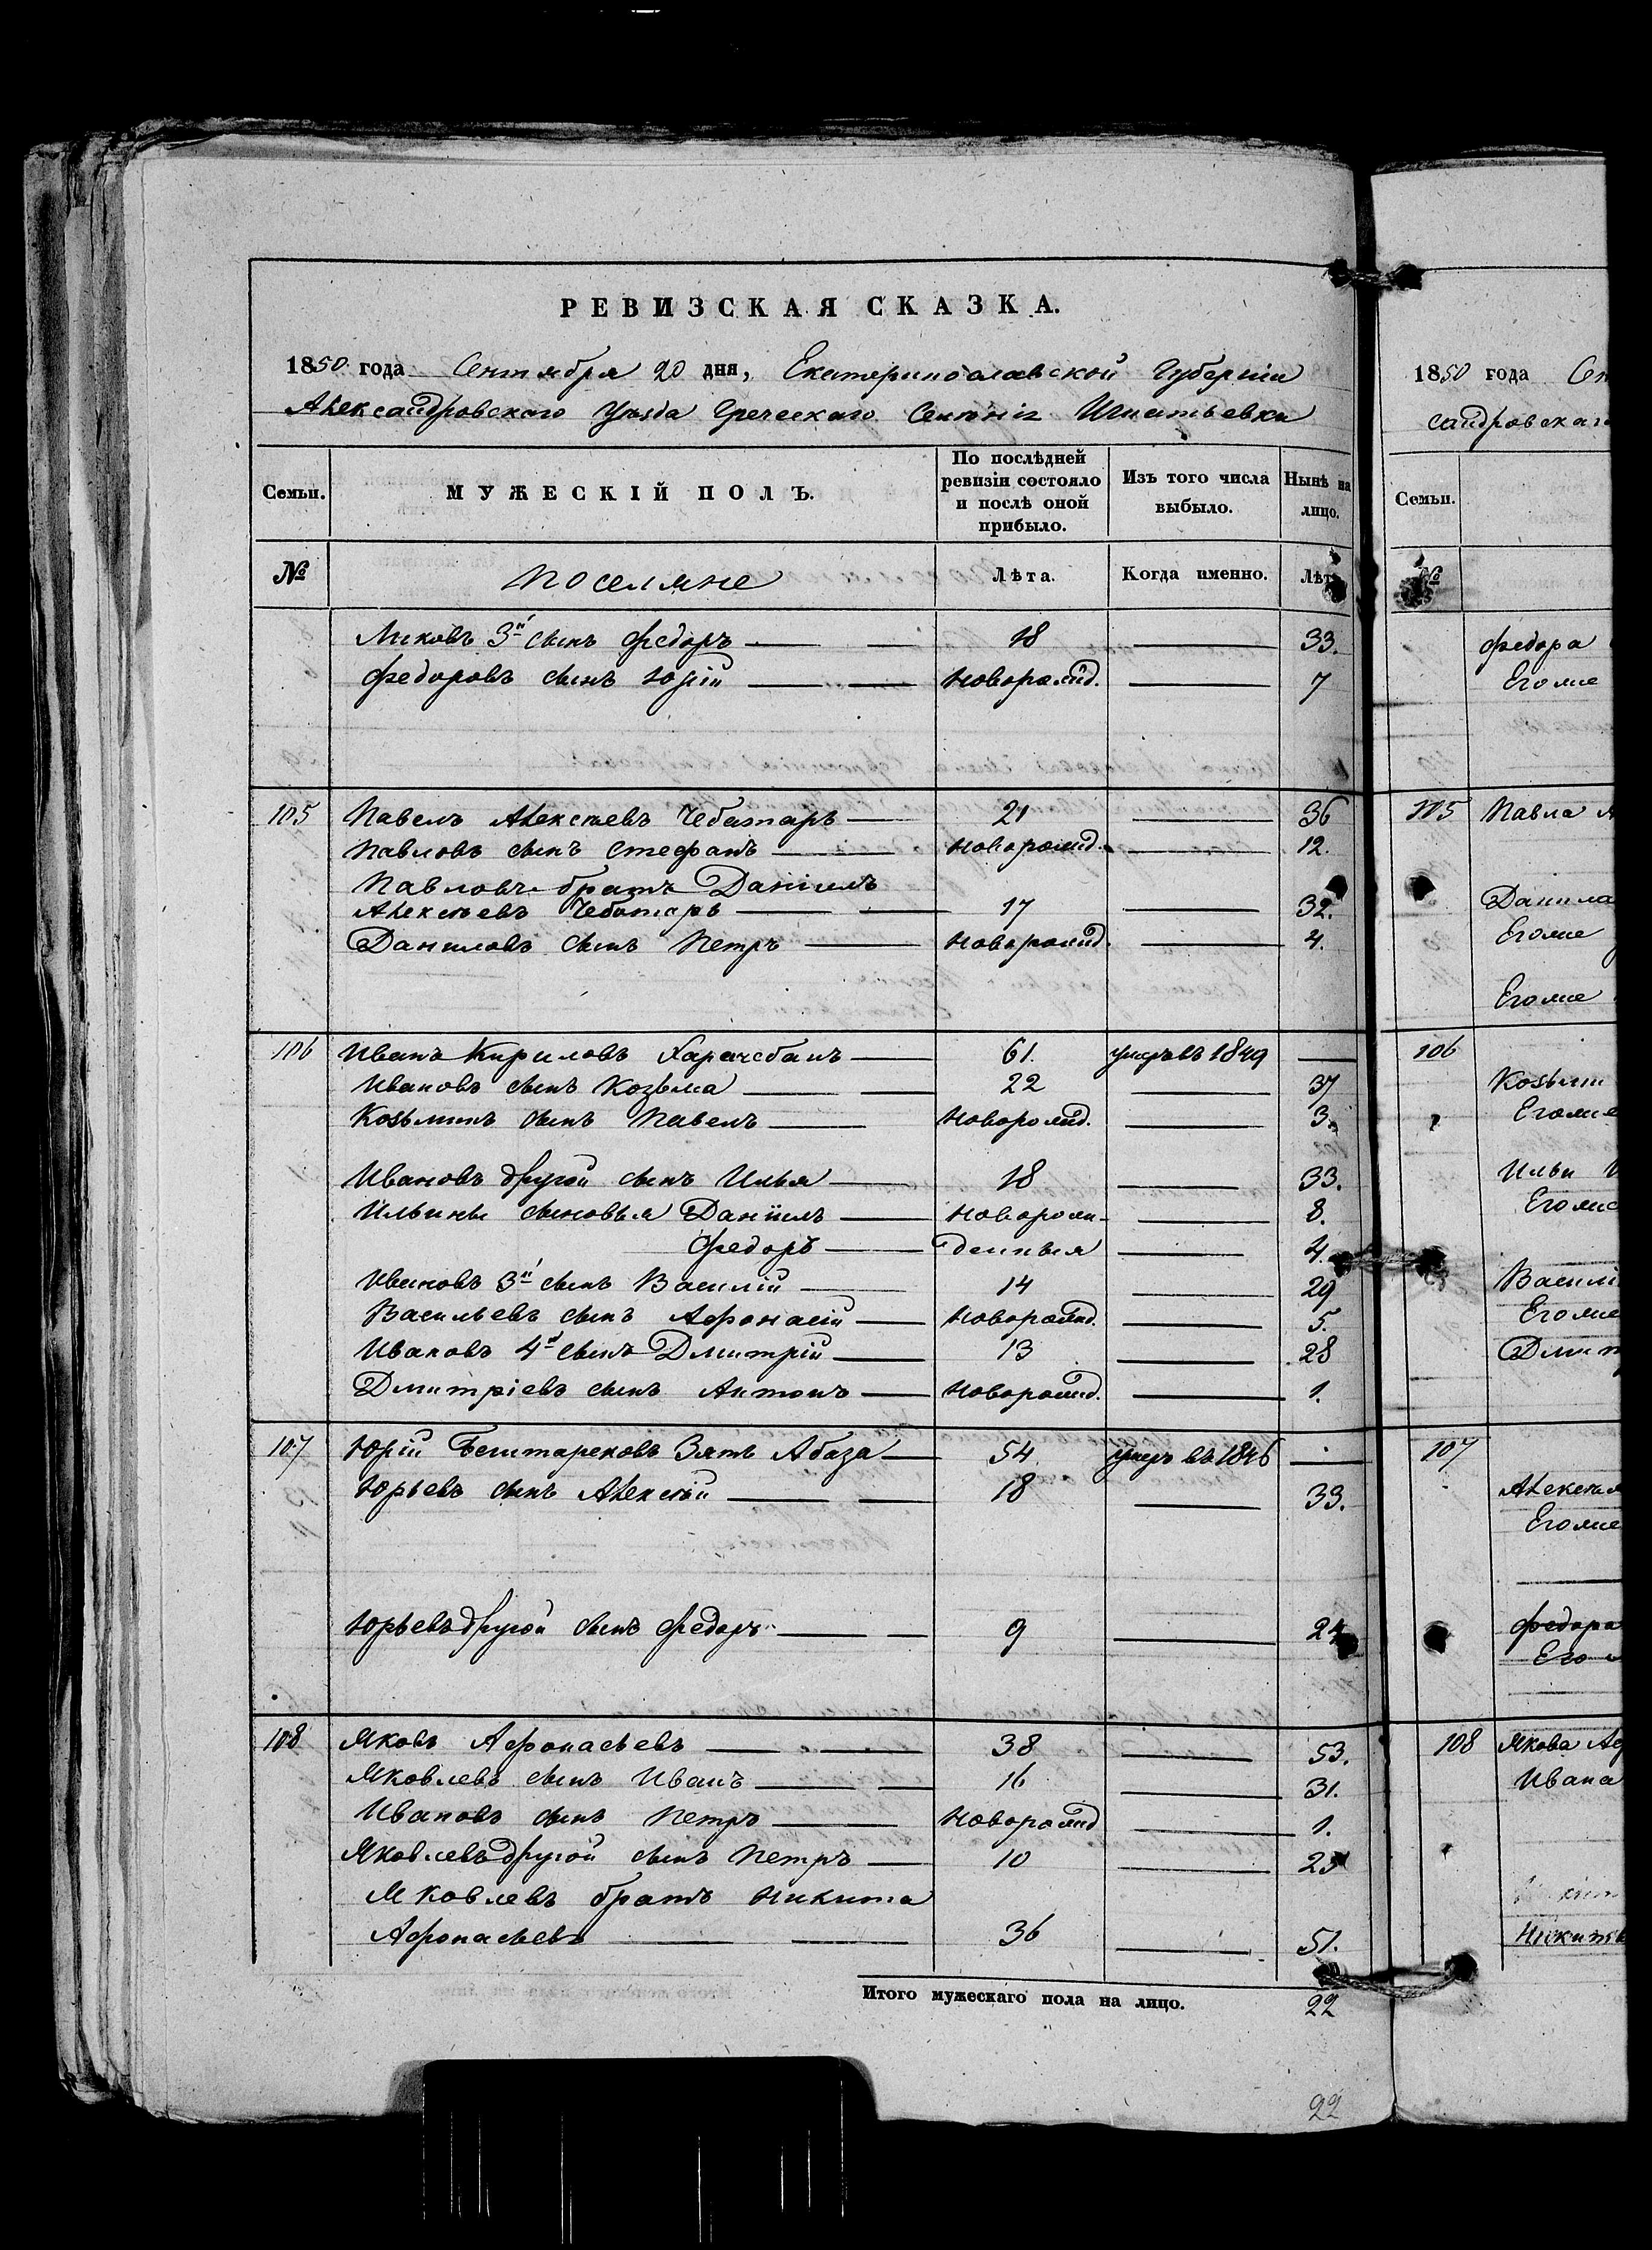 РЕВИЗСКАЯ СКАЗКА.
1850 года Сентября 20 дня, Екатеринославской Губерніи
Александровскаго Уѣзда Греческаго Селенія Игнатьевки
Семьи.
МУЖЕСКІЙ ПОЛЪ.
По послѣдней ревизіи состояло и послѣ оной прибыло.
Изъ того числа выбыло.
Нынѣ на лицо.
№ Поселяне Лѣта. Когда именно. Лѣта
Яковъ 3й сынъ Федоръ 18 33.
Федоровъ сынъ Юрій новорожд. 7
105 Павелъ Алексѣевъ Чебатарь 21 36
Павловъ сынъ Стефанъ новорожд. 12.
Павловъ братъ Даніилъ
Алексѣевъ Чебатарь 17 32.
Даниловъ сынъ Петръ новорожд. 4.
106 Иванъ Кириловъ Харачсбанъ 61. умеръ въ 1849
Ивановъ сынъ Козьма 22 37
Козьминъ сынъ Павелъ новорожд. 3.
Ивановъ другой сынъ Илья 18 33.
Ильины сыновья Даніилъ новорож- 8.
Федоръ денныя 4.
Ивановъ 3й сынъ Василій 14 29
Васильевъ сынъ Афонасій новорожд. 5.
Ивановъ 4й сынъ Дмитрій 13 28
Дмитріевъ сынъ Антонъ новорожд. 1.
107 Юрій Бештарековъ Зять Абаза 54 умеръ въ 1846
Юрьевъ сынъ Алексѣй 18 33.
Юрьевъ другой сынъ Федоръ 9 24
108 Яковъ Афонасьевъ 38 53.
Яковлевъ сынъ Иванъ 16 31.
Ивановъ сынъ Петръ новорожд 1.
Яковлевъ другой сынъ Петръ 10 25
Яковлевъ братъ Никита
Афонасьевъ 36 51.
Итого мужескаго пола на лицо. 22
22
1850 года Сен
сандровскаго
Семьи.
№
Федора
Егоже
105 Павла А
Данила
Егоже
Егоже
106
Козьмы
Егоже
Ильи И
Егоже
Васил
Егоже
Дмит
107
Алексѣя
Егоже
Федора
Его
108 Якова Аф
Ивана
Никиты